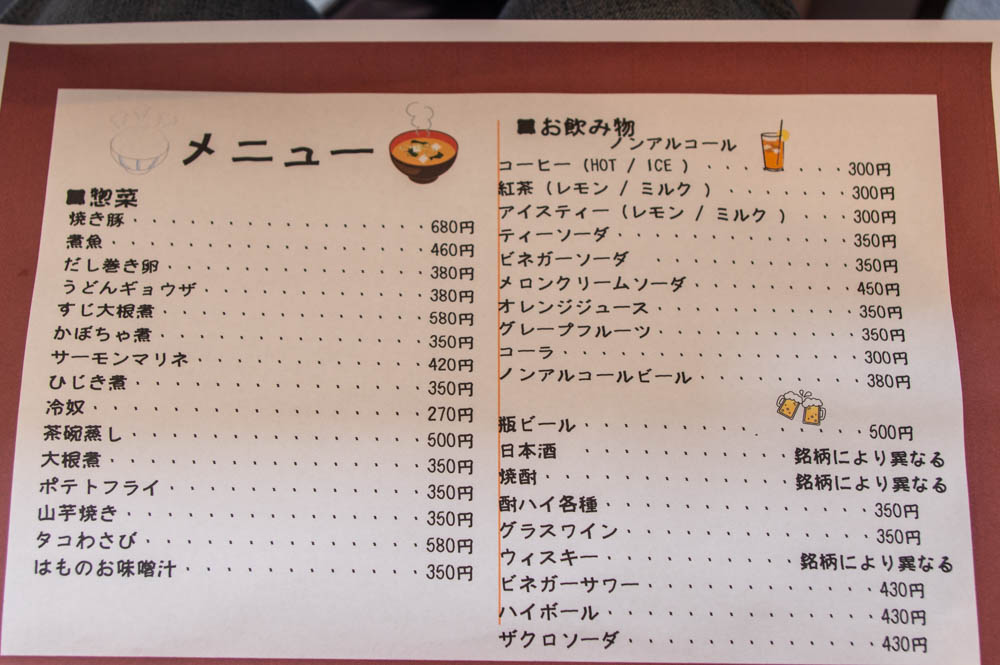 メニュー
■惣菜
焼き豚・・・・・・・・・・・・・・680円
煮魚・・・・・・・・・・・・・・・460円
だし巻き卵・・・・・・・・・・・・380円
うどんギョウザ・・・・・・・・・・380円
すじ大根煮・・・・・・・・・・・・580円
かぼちゃ煮・・・・・・・・・・・・350円
サーモンマリネ・・・・・・・・・・420円
ひじき煮・・・・・・・・・・・・・350円
冷奴・・・・・・・・・・・・・・・270円
茶碗蒸し・・・・・・・・・・・・・500円
大根煮・・・・・・・・・・・・・・350円
ポテトフライ・・・・・・・・・・・350円
山芋焼き・・・・・・・・・・・・・350円
タコわさび・・・・・・・・・・・・580円
はものお味噌汁・・・・・・・・・・350円
■お飲み物
ノンアルコール
コーヒー(HOT / ICE )・・・・・・300円
紅茶(レモン / ミルク )・・・・・・300円
アイスティー(レモン / ミルク )・・・300円
ティーソーダ・・・・・・・・・・350円
ビネガーソーダ・・・・・・・・・350円
メロンクリームソーダ・・・・・・・450円
オレンジジュース・・・・・・・・350円
グレープフルーツ・・・・・・・・350円
コーラ・・・・・・・・・・・・・300円
ノンアルコールビール・・・・・・・380円
瓶ビール・・・・・・・・・・・・500円
日本酒・・・・・・・・・銘柄により異なる
焼酎・・・・・・・・・・銘柄により異なる
酎ハイ各種・・・・・・・・・・・350円
グラスワイン・・・・・・・・・・350円
ウィスキー・・・・・・・銘柄により異なる
ビネガーサワー・・・・・・・・・430円
ハイボール・・・・・・・・・・・430円
ザクロソーダ・・・・・・・・・・430円